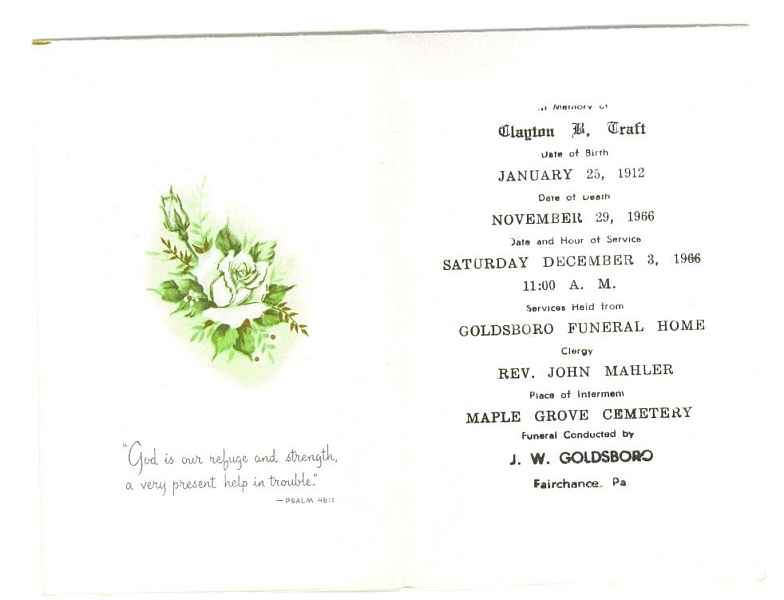 "God is our refuge and strength,
a very present help in trouble."
—PSALM 46:1
In Memory of
Clayton B. Traft
Date of Birth
JANUARY 25, 1912
Date of Death
NOVEMBER 29, 1966
Date and Hour of Service
SATURDAY DECEMBER 3, 1966
11:00 A. M.
Services Held from
GOLDSBORO FUNERAL HOME
Clergy
REV. JOHN MAHLER
Place of Interment
MAPLE GROVE CEMETERY
Funeral Conducted by
J. W. GOLDSBORO
Fairchance, Pa